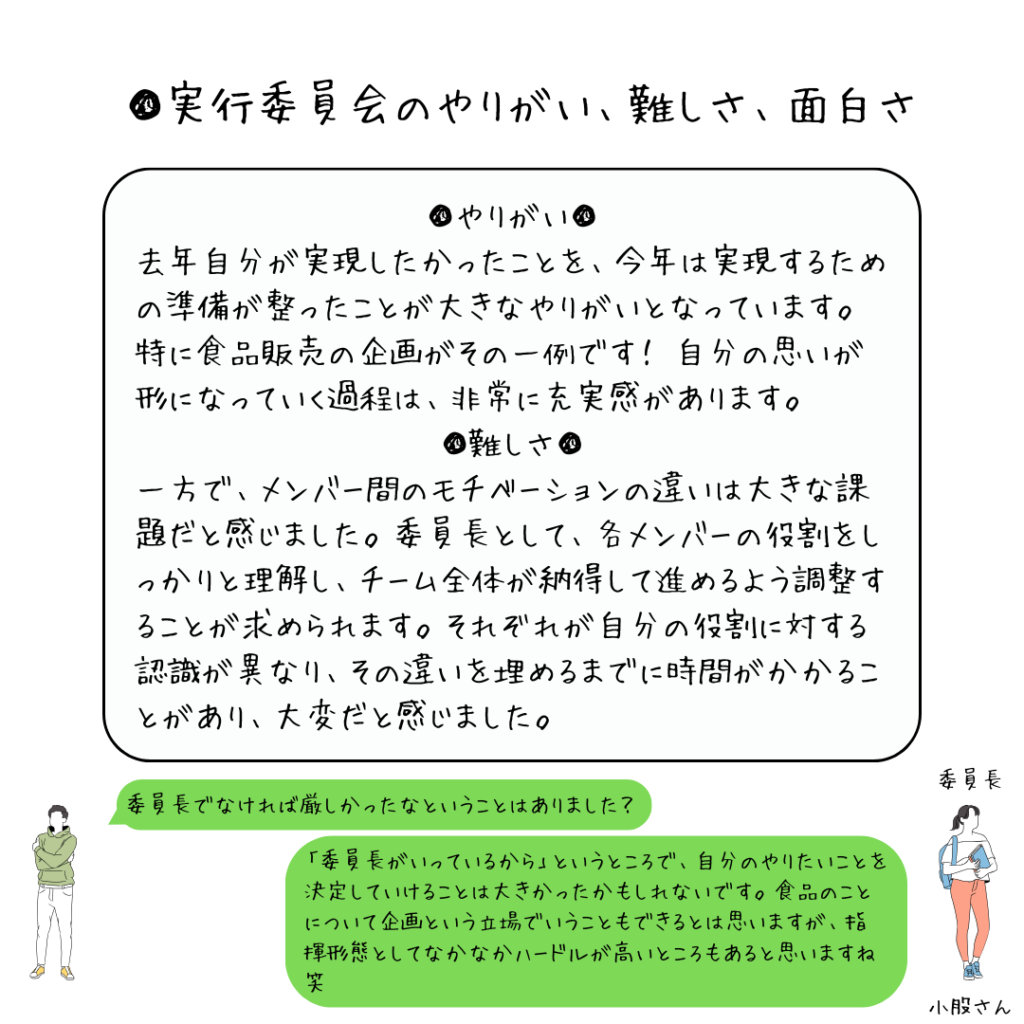 ●実行委員会のやりがい、難しさ、面白さ
●やりがい●
去年自分が実現したかったことを、今年は実現するため
の準備が整ったことが大きなやりがいとなっています。
特に食品販売の企画がその一例です! 自分の思いが
形になっていく過程は、非常に充実感があります。
●難しさ●
一方で、メンバー間のモチベーションの違いは大きな課
題だと感じました。委員長として、各メンバーの役割をし
っかりと理解し、チーム全体が納得して進めるよう調整す
ることが求められます。それぞれが自分の役割に対する
認識が異なり、その違いを埋めるまでに時間がかかるこ
とがあり、大変だと感じました。
委員長でなければ厳しかったなということはありました?
「委員長がいっているから」というところで、自分のやりたいことを
決定していけることは大きかったかもしれないです。食品のこと
について企画という立場でいうこともできるとは思いますが、指
揮形態としてなかなかハードルが高いところもあると思いますね
笑
委員長
小股さん